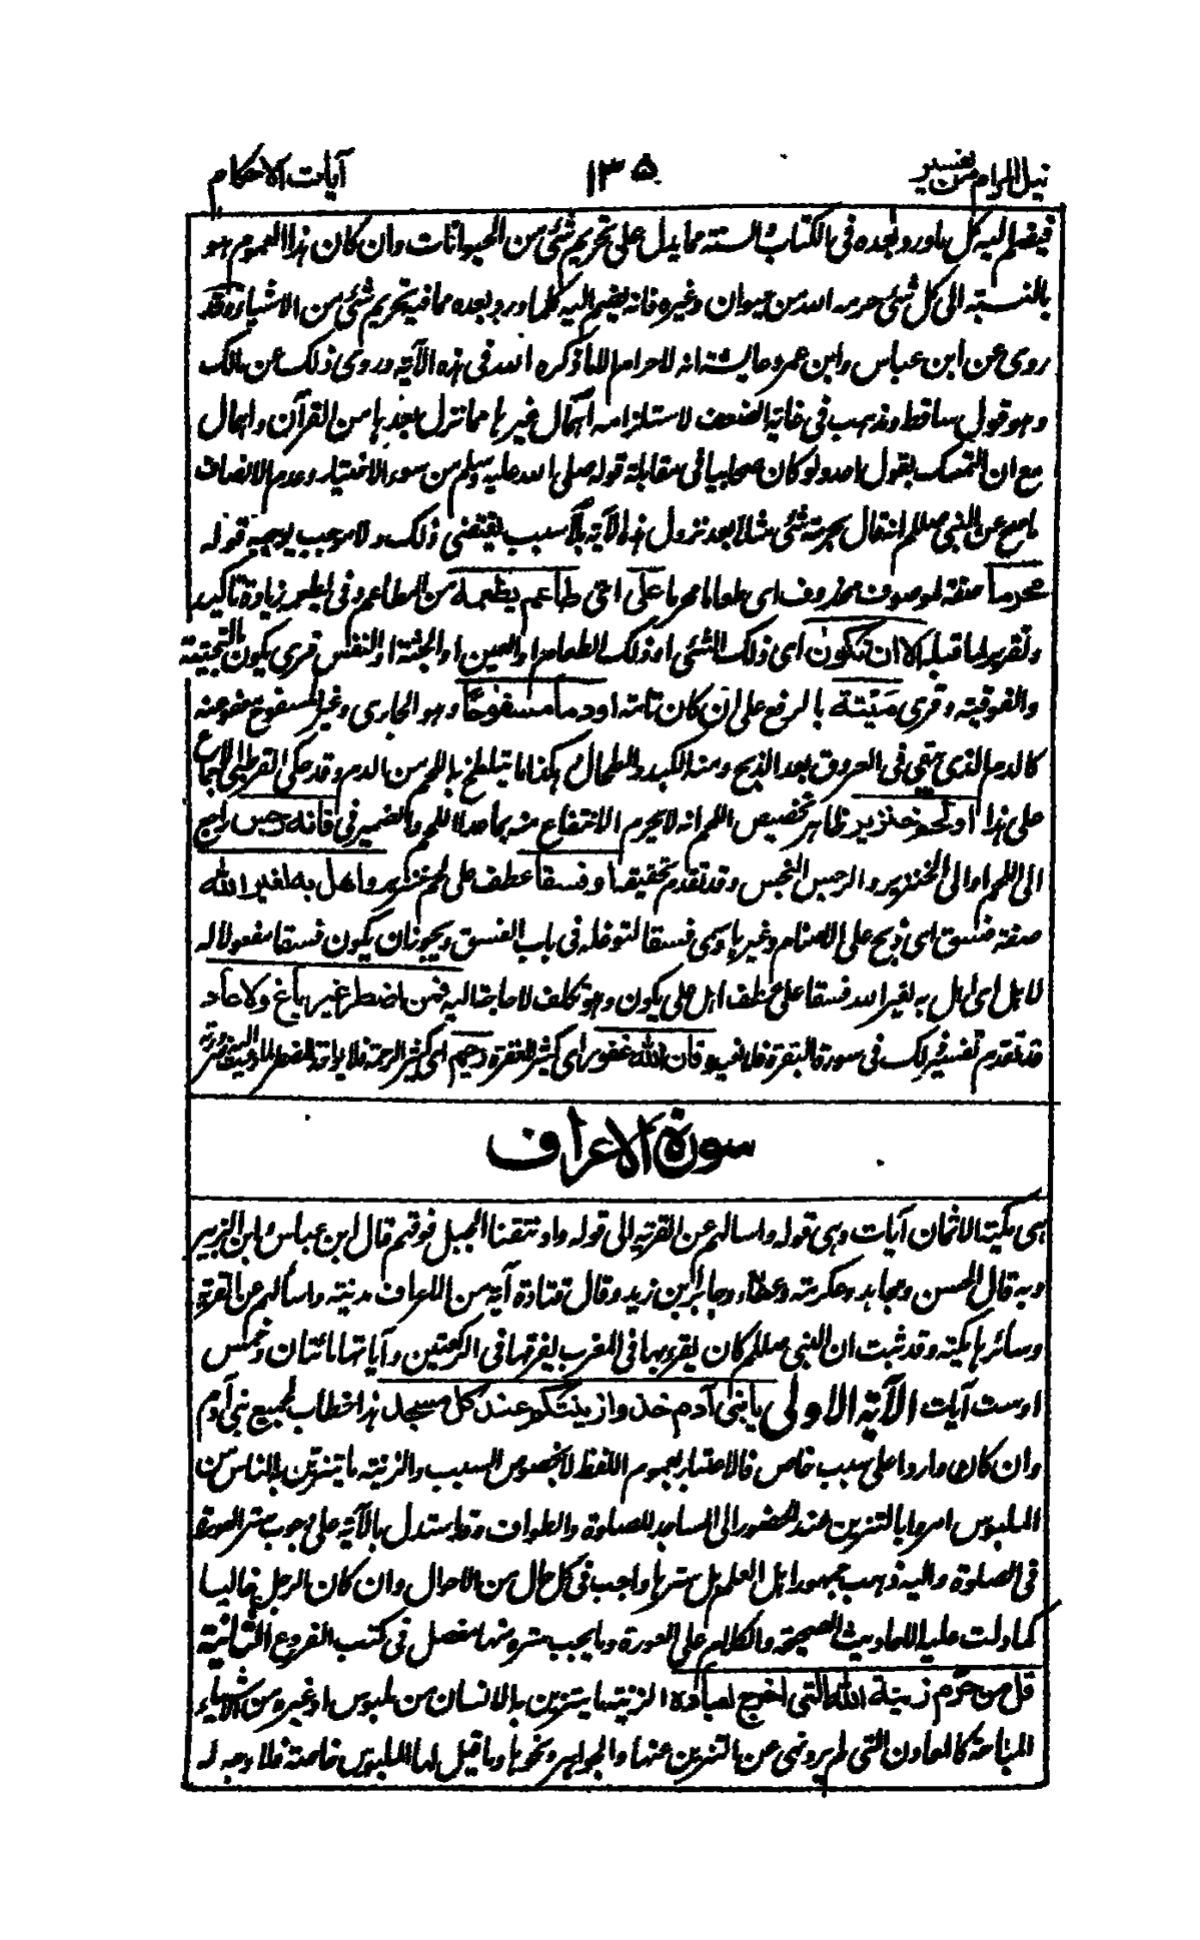 نيل المرام من تفسير ١٣٥ آيات الاحكام
فيضم اليه كل ما ورد بعده فى الكتاب والسنة مما يدل على تحريم شئ من الحيوانات وان كان هذا العموم هو
بالنسبة الى كل شئ حرمه الله من حيوان وغيره فانه يضم اليه كلما ورد بعده مما فيه تحريم شئ من الاشياء وقد
روى عن ابن عباس وابن عمر وعايشة انه لا حرام الا ما ذكره الله فى هذه الآية وروى ذلك عن مالك
وهو قول ساقط ومذهب فى غاية الضعف لاستلزامه اهمال غيرها مما نزل بعدها من القرآن واهمال
مع ان التمسك بقول احد ولو كان صحابيا فى مقابلة قوله صلى الله عليه وسلم من سوء الاختيار وعدم الانصاف
ما صح عن النبى صلعم انه قال بحرمة شئ مثلا بعد نزول هذه الآية بلا سبب يقتضى ذلك ولا موجب يوجبه قوله
محرما صفة لموصوف محذوف اى طعاما محرما على اى طاعم يطعمه من المطاعم وفى يطعمه زيادة تاكيد
وتقرير لما قبله الا ان تكون اى ذلك الشئ او ذلك الطعام او العين او الجثة او النفس قرى يكون بالتحتية
والفوقية وقرى ميتة بالرفع على ان كان تامة او دما مسفوحا وهو الجارى وغير المسفوح معفو عنه
كالدم الذى يبقى فى العروق بعد الذبح ومنه الكبد والطحال وهكذا ما يتلطخ به اللحم من الدم وقد حكى القرطبى الاجماع
على هذا او لحم خنزير ظاهر تخصيص اللحم انه لا يحرم الانتفاع منه بما عدا اللحم والضمير فى فانه رجس راجع
الى اللحم او الى الخنزير والرجس النجس وقد تقدم تحقيقه او فسقا عطف على لحم خنزير واهل به لغير الله
صفة فسق اى ذبح على الاصنام وغيرها وسمى فسقا لتوغله فى باب الفسق ويجوز ان يكون فسقا مفعولا له
لاهل اى اهل به لغير الله فسقا على عطف اهل على يكون وهو تكلف لا حاجة اليه فمن اضطر غير باغ ولا عاد
قد تقدم تفسير ذلك فى سورة البقرة فلا نعيده فان الله غفور اى كثير المغفرة رحيم اى كثير الرحمة فلا يواخذ المضطر
سورة الاعراف
هى مكية الا ثمان آيات وهى قوله واسألهم عن القرية الى قوله واذ نتقنا الجبل فوقهم قال ابن عباس وابن الزبير
وبه قال الحسن ومجاهد وعكرمة وعطاء وجابر بن زيد وقال قتادة آية من الاعراف مدنية واسألهم عن القرية
وسائرها مكية وقد ثبت ان النبى صلعم كان يقرء بها فى المغرب يفرقها فى الركعتين وآياتها مائتان وخمس
او ست آيات الآية الاولى يا بنى آدم خذوا زينتكم عند كل مسجد هذا خطاب لجميع بنى آدم
وان كان واردا على سبب خاص فالاعتبار بعموم اللفظ لا بخصوص السبب والزينة ما يتزين به الناس من
الملبوس امروا بالتزين عند الحضور الى المساجد للصلوة والطواف وقد استدل بالآية على وجوب ستر العورة
فى الصلوة واليه ذهب جمهور اهل العلم بل سترها واجب فى كل حال من الاحوال وان كان الرجل خاليا
كما دلت عليه الاحاديث الصحيحة والكلام على العورة وما يجب ستره منها مفصل فى كتب الفروع الثانية
قل من حرم زينة الله التى اخرج لعباده الزينة ما يتزين به الانسان من ملبوس او غيره من الاشياء
المباحة كالمعادن التى لم يرد نهى عن التزين عنها والجواهر ونحوها وما قيل انها الملبوس خاصة فلا وجه له